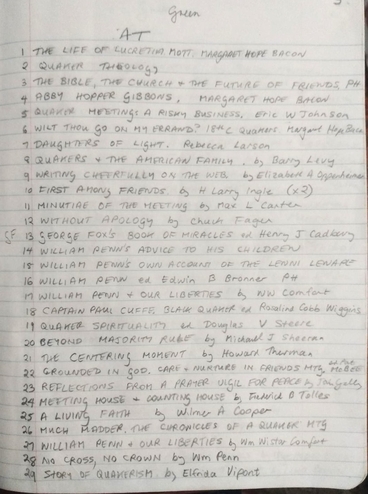 Green
AT
1 THE LIFE OF LUCRETIA MOTT. MARGARET HOPE BACON
2 QUAKER THEOLOGY
3 THE BIBLE, THE CHURCH & THE FUTURE OF FRIENDS, PH
4 ABBY HOPPER GIBBONS, MARGARET HOPE BACON
5 QUAKER MEETING: A RISKY BUSINESS, Eric W Johnson
6 WILT THOU GO ON MY ERRAND? 18th C Quakers. Margaret Hope Bacon
7 DAUGHTERS OF LIGHT. Rebecca Larson
8 QUAKERS & THE AMERICAN FAMILY. by Barry Levy
9 WRITING CHEERFULLY ON THE WEB by Elizabeth A Oppenheimer
10 FIRST AMONG FRIENDS. by H Larry Ingle (x2)
11 MINUTIAE OF THE MEETING by Max L Carter
12 WITHOUT APOLOGY by Chuck Fager
13 GEORGE FOX'S BOOK OF MIRACLES ed Henry J Cadbury
14 WILLIAM PENN'S ADVICE TO HIS CHILDREN
15 WILLIAM PENN'S OWN ACCOUNT OF THE LENNI LENAPE
16 WILLIAM PENN ed Edwin B Bronner PH
17 WILLIAM PENN & OUR LIBERTIES by WW Comfort
18 CAPTAIN PAUL CUFFE, BLACK QUAKER ed Rosalind Cobb Wiggins
19 QUAKER SPIRITUALITY ed Douglas V Steere
20 BEYOND MAJORITY RULE by Michael J Sheeran
21 THE CENTERING MOMENT by Howard Thurman
22 GROUNDED IN GOD. CARE & NURTURE IN FRIENDS MTG
23 REFLECTIONS FROM A PRAYER VIGIL FOR PEACE by
24 MEETING HOUSE & COUNTING HOUSE by Frederick B Tolles
25 A LIVING FAITH by Wilmer A Cooper
26 MUCH MADDER, THE CHRONICLES OF A QUAKER MTG
27 WILLIAM PENN & OUR LIBERTIES by Wm Wistar Comfort
28 NO CROSS, NO CROWN by Wm Penn
29 STORY OF QUAKERISM. by Elfrida Vipont